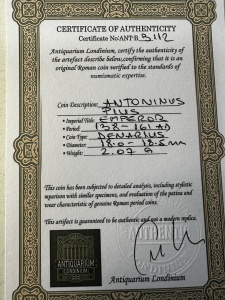 CERTIFICATE OF AUTHENTICITY
Certificate No:ANT-B 3112
Antiquarium Londinium, certify the authenticity of
the artefact describe below,confirming that it is an
original Roman coin verified to the standards of
numismatic expertise.
Coin Description: ANTONINUS
PIUS
• Imperial Title: EMPEROR
• Period: 138-161 AD
• Coin Type: DENARIUS
• Diameter: 18.0 - 18.5mm
• Weight: 2.02 G
This coin has been subjected to detailed analysis, including stylistic
comparison with similar specimens, and evaluation of the patina and
wear characteristic of genuine Roman period coins.
This artifact is guaranteed to be authentic and not a modern replica.
ANTIQUARIUM
LONDINIUM
Antiquarium Londinium